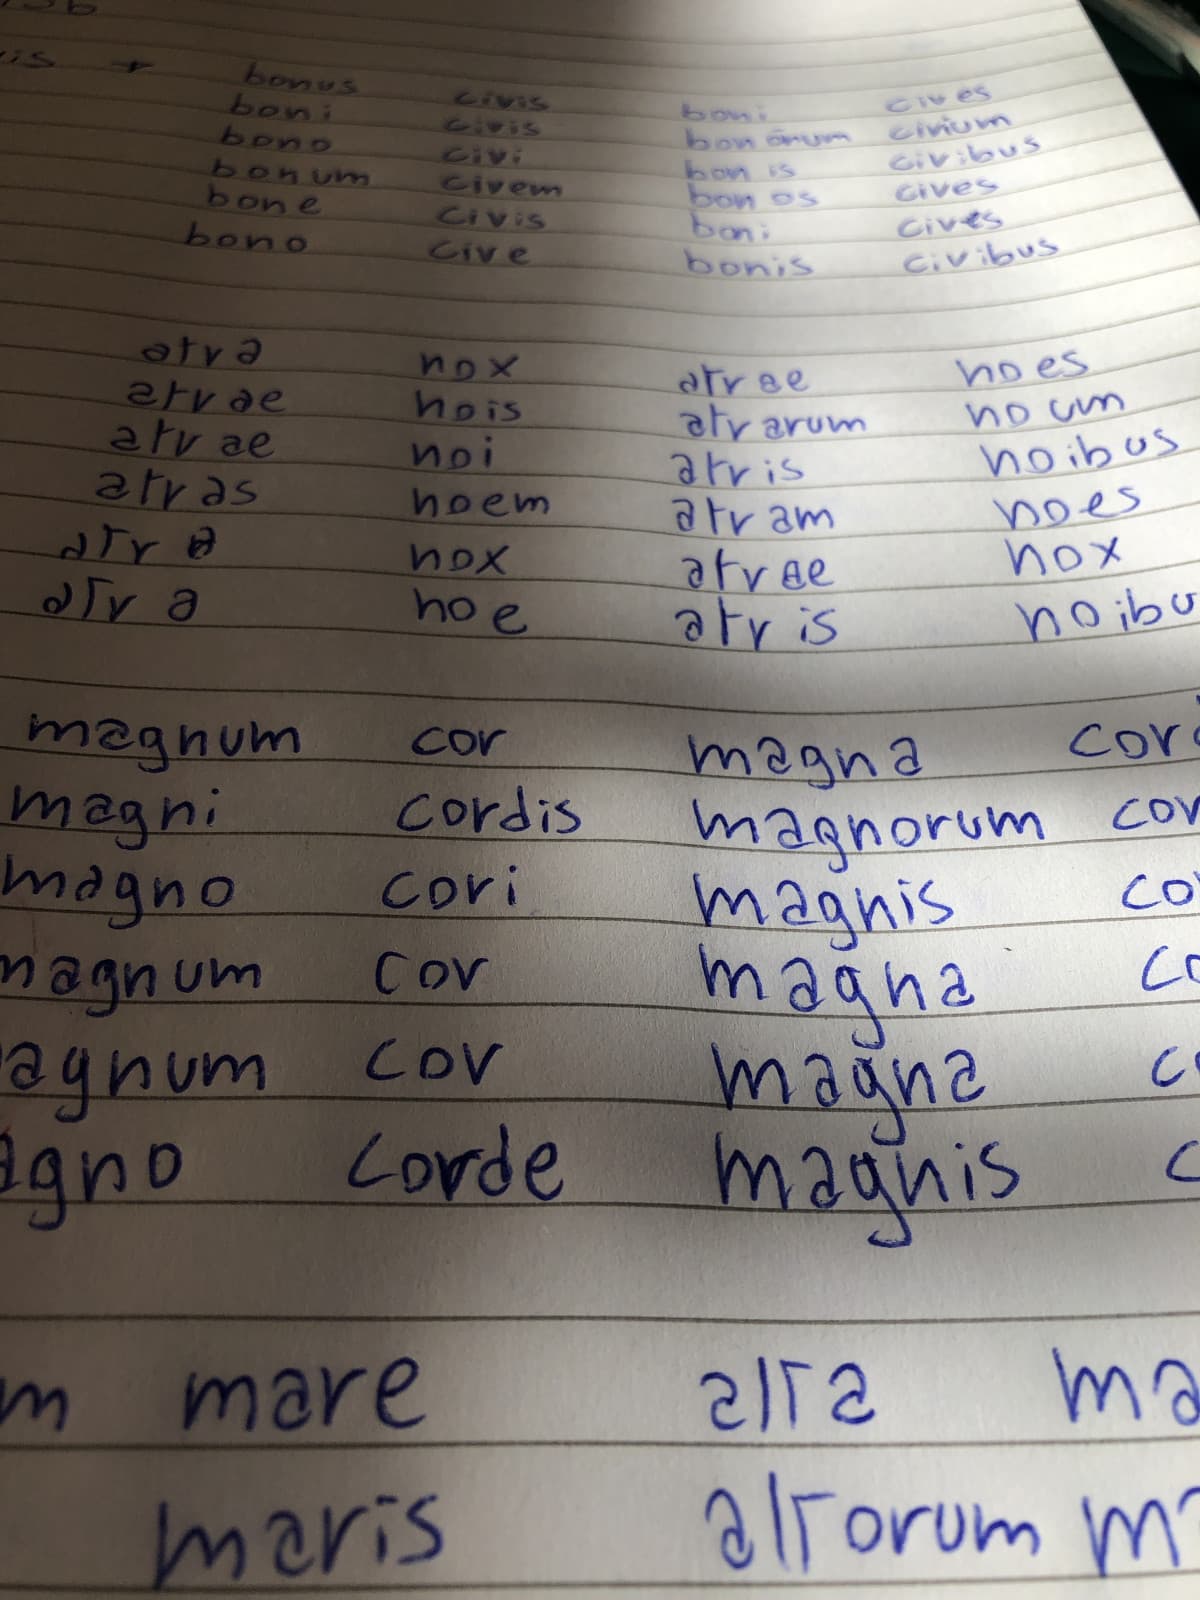 bonus civis boni cives
boni civis bonōrum civium
bono civi bonis civibus
bonum civem bonos cives
bone civis boni cives
bono cive bonis civibus
atra nox atrae noes
atrae nois atrarum noum
atrae noi atris noibus
atras noem atram noes
atra nox atrae nox
atra noe atris
magnum cor magna
magni cordis magnorum
magno cori magnis
magnum cor magna
cor magna
corde magnis
mare alta
maris altorum